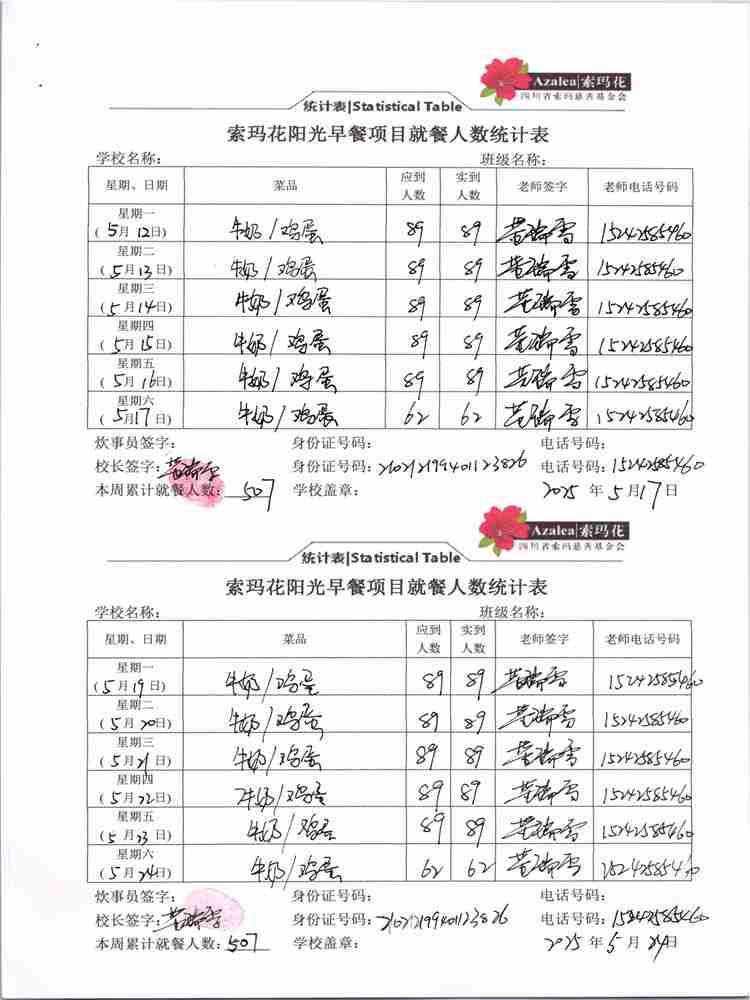 Azalea|索玛花
四川省索玛慈善基金会
统计表|Statistical Table
索玛花阳光早餐项目就餐人数统计表
学校名称： 班级名称：
星期、日期 菜品 应到人数 实到人数 老师签字 老师电话号码
星期一
(5月12日) 牛奶/鸡蛋 89 89 15242585460
星期二
(5月13日) 牛奶/鸡蛋 89 89 15242585460
星期三
(5月14日) 牛奶/鸡蛋 89 89 15242585460
星期四
(5月15日) 牛奶/鸡蛋 89 89 15242585460
星期五
(5月16日) 牛奶/鸡蛋 89 89 15242585460
星期六
(5月17日) 牛奶/鸡蛋 62 62 15242585460
炊事员签字： 身份证号码： 电话号码：
校长签字： 身份证号码：210212199401123826 电话号码：15242585460
本周累计就餐人数：507 学校盖章： 2025年5月17日
Azalea|索玛花
四川省索玛慈善基金会
统计表|Statistical Table
索玛花阳光早餐项目就餐人数统计表
学校名称： 班级名称：
星期、日期 菜品 应到人数 实到人数 老师签字 老师电话号码
星期一
(5月19日) 牛奶/鸡蛋 89 89 15242585460
星期二
(5月20日) 牛奶/鸡蛋 89 89 15242585460
星期三
(5月21日) 牛奶/鸡蛋 89 89 15242585460
星期四
(5月22日) 牛奶/鸡蛋 89 89 15242585460
星期五
(5月23日) 牛奶/鸡蛋 89 89 15242585460
星期六
(5月24日) 牛奶/鸡蛋 62 62 15242585460
炊事员签字： 身份证号码： 电话号码：
校长签字： 身份证号码：210212199401123826 电话号码：15242585460
本周累计就餐人数：507 学校盖章： 2025年5月24日